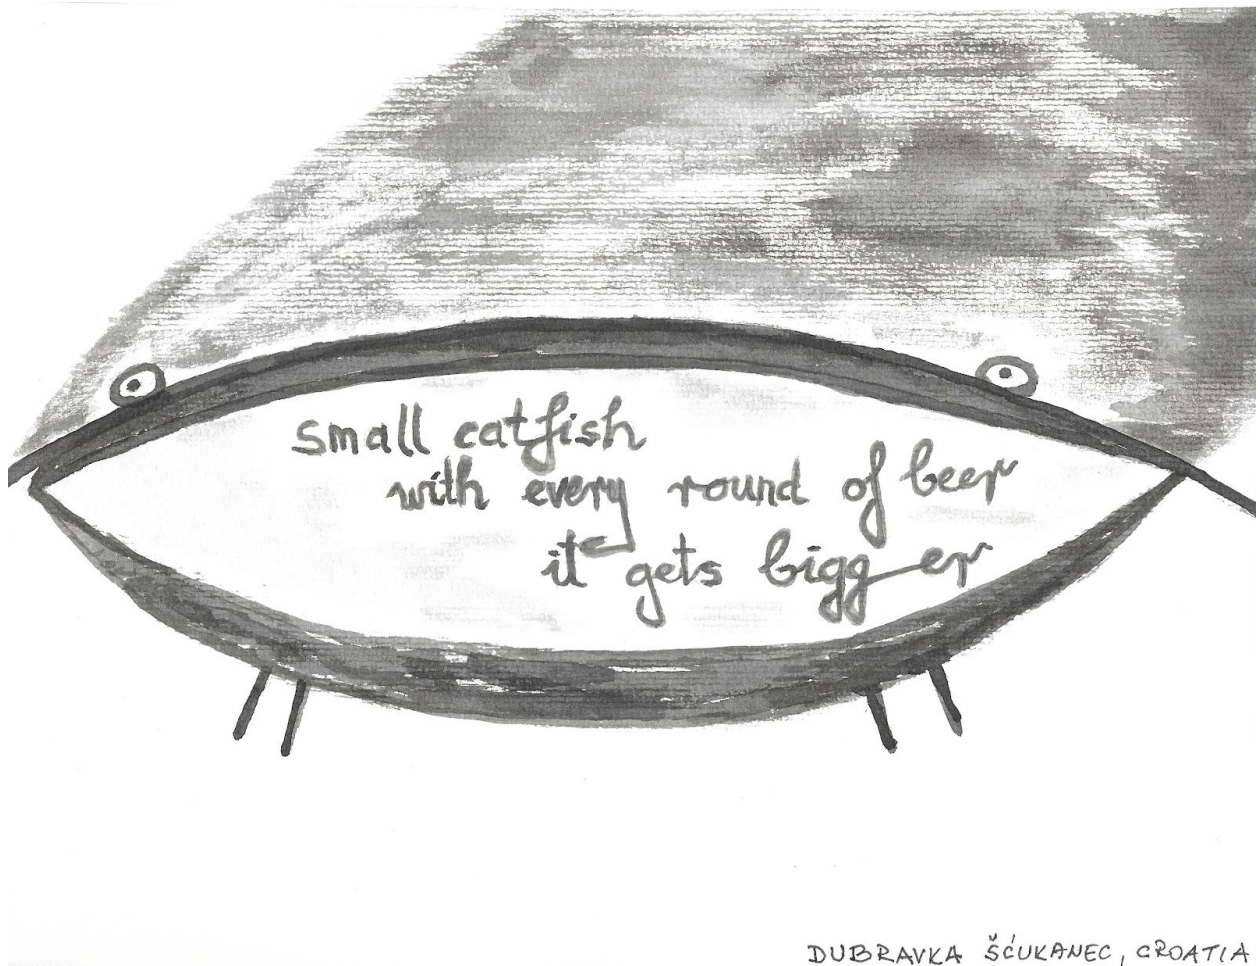 small catfish
with every round of beer
it gets bigger
DUBRAVKA ŠĆUKANEC, CROATIA